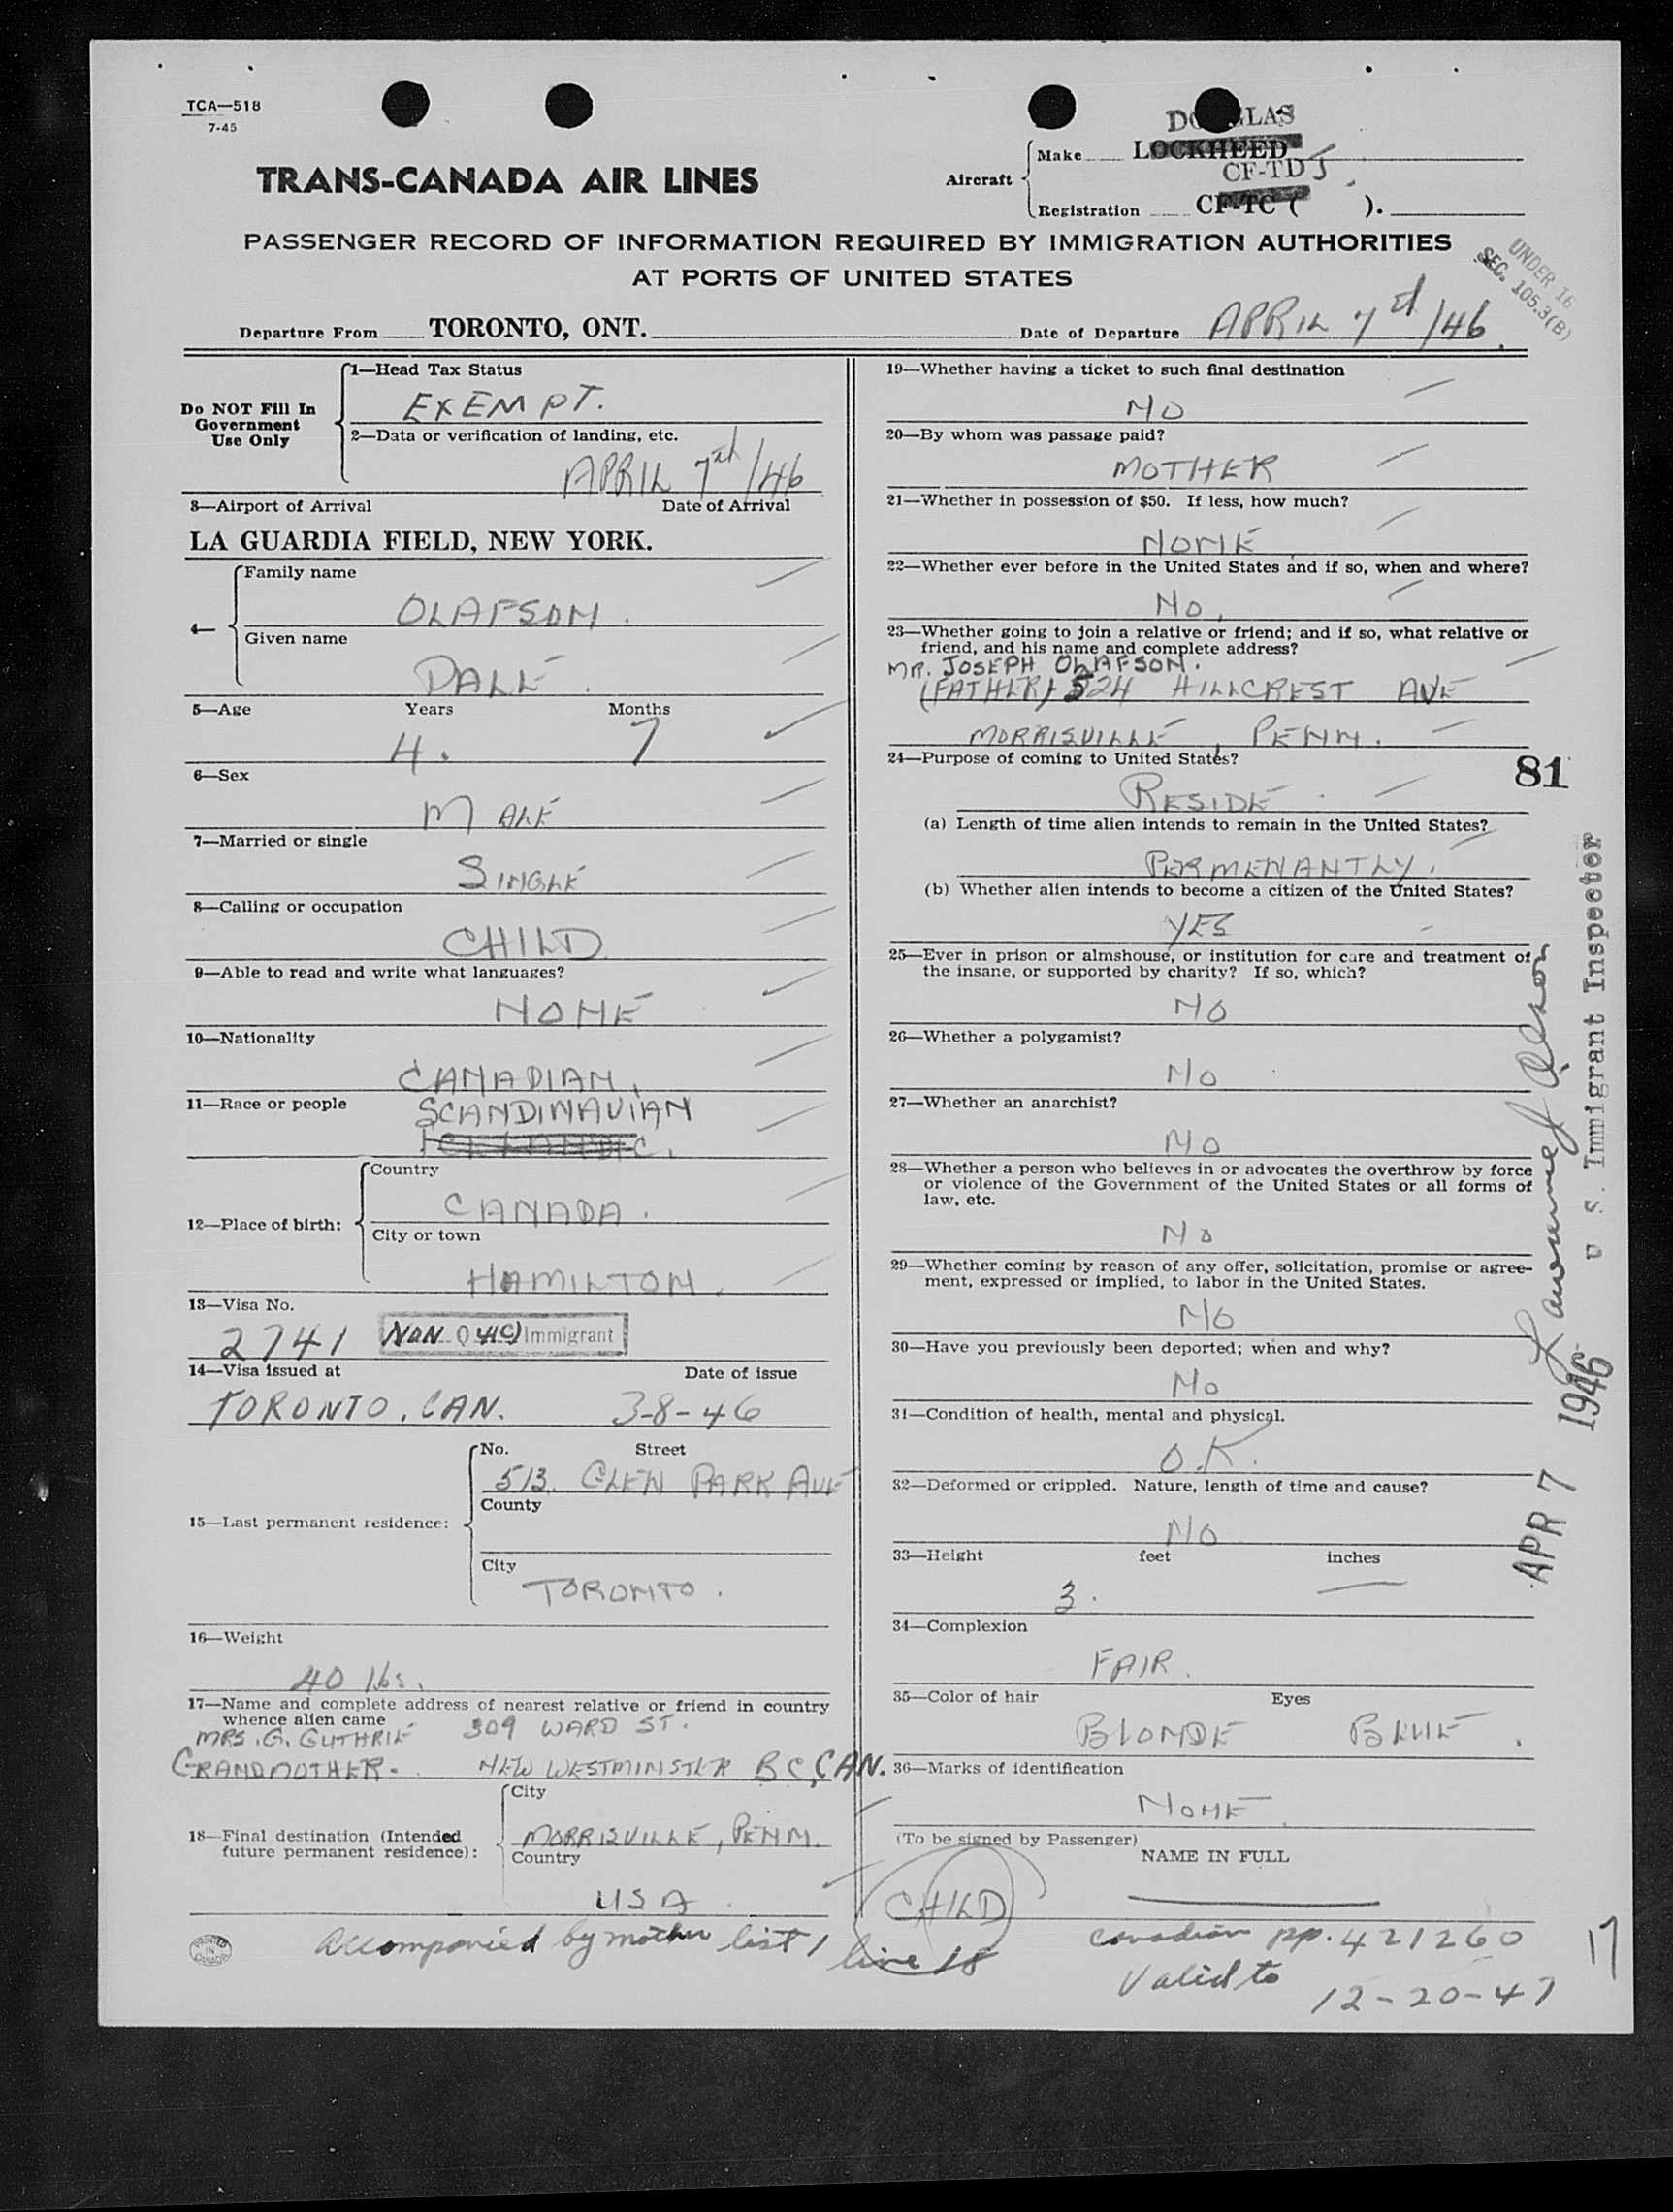 TCA—518
7-45
TRANS-CANADA AIR LINES
DOUGLAS
Aircraft
Make LOCKHEED
CF-TDJ
Registration CF-TC ( ).
PASSENGER RECORD OF INFORMATION REQUIRED BY IMMIGRATION AUTHORITIES
AT PORTS OF UNITED STATES
UNDER 16
SEC. 105.3(B)
Departure From TORONTO, ONT. Date of Departure APRIL 7th/46.
Do NOT Fill In
Government
Use Only
1—Head Tax Status
EXEMPT.
2—Data or verification of landing, etc.
APRIL 7th/46
3—Airport of Arrival Date of Arrival
LA GUARDIA FIELD, NEW YORK.
4—
Family name
OLAFSON.
Given name
DALE.
5—Age Years Months
4. 7
6—Sex
MALE
7—Married or single
SINGLE
8—Calling or occupation
CHILD
9—Able to read and write what languages?
NONE
10—Nationality
CANADIAN.
11—Race or people SCANDINAVIAN
ICELANDIC.
12—Place of birth:
Country
CANADA.
City or town
HAMILTON
13—Visa No.
2741 NON 4(C) Immigrant
14—Visa issued at Date of issue
TORONTO, CAN. 3-8-46
15—Last permanent residence:
No. Street
513. GLEN PARK AVE
County
City
TORONTO.
16—Weight
40 lbs.
17—Name and complete address of nearest relative or friend in country
whence alien came
MRS. G. GUTHRIE 309 WARD ST.
GRANDMOTHER. NEW WESTMINSTER B C, CAN.
18—Final destination (Intended
future permanent residence):
City
MORRISVILLE, PENN.
Country
USA
19—Whether having a ticket to such final destination
NO
20—By whom was passage paid?
MOTHER
21—Whether in possession of $50. If less, how much?
NONE
22—Whether ever before in the United States and if so, when and where?
NO.
23—Whether going to join a relative or friend; and if so, what relative or
friend, and his name and complete address?
MR. JOSEPH OLAFSON.
(FATHER) 524 HILLCREST AVE
MORRISVILLE, PENN.
24—Purpose of coming to United States?
RESIDE
81
(a) Length of time alien intends to remain in the United States?
PERMENANTLY.
(b) Whether alien intends to become a citizen of the United States?
YES
25—Ever in prison or almshouse, or institution for care and treatment of
the insane, or supported by charity? If so, which?
NO
26—Whether a polygamist?
NO
27—Whether an anarchist?
NO
28—Whether a person who believes in or advocates the overthrow by force
or violence of the Government of the United States or all forms of
law, etc.
NO
29—Whether coming by reason of any offer, solicitation, promise or agree-
ment, expressed or implied, to labor in the United States.
NO
30—Have you previously been deported; when and why?
NO
31—Condition of health, mental and physical.
O.K.
32—Deformed or crippled. Nature, length of time and cause?
NO
33—Height feet inches
3. —
34—Complexion
FAIR.
35—Color of hair Eyes
BLONDE BLUE.
36—Marks of identification
NONE
(To be signed by Passenger)
NAME IN FULL
CHILD
U. S. Immigrant Inspector
APR 7 1946
PRINTED IN CANADA
accompanied by mother list 1 line 18
Canadian pp. 421260
Valid to
12-20-47
17